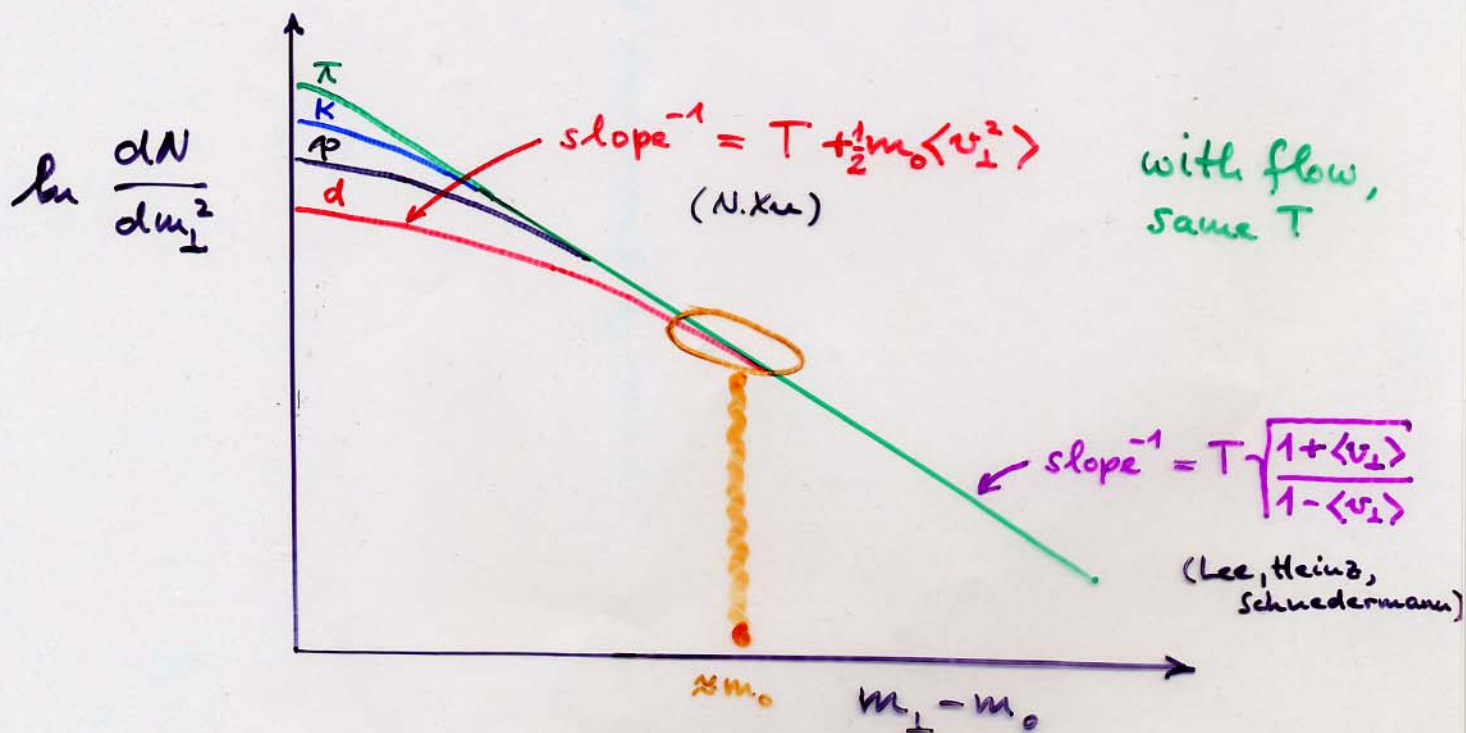 π
K
p
d
ln dN/dm⊥²
slope⁻¹ = T + ½m₀⟨v⊥²⟩
(N.Xu)
with flow,
same T
slope⁻¹ = T √((1+⟨v⊥⟩)/(1-⟨v⊥⟩))
(Lee, Heinz,
Schnedermann)
≈m₀
m⊥ - m₀